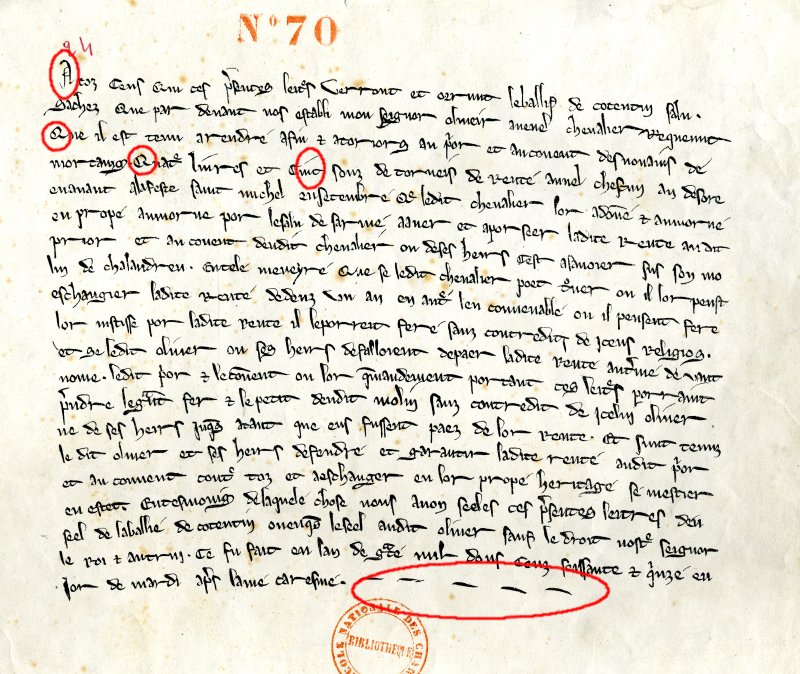 Nº 70
24
A toz ceus qui ces p̃sentes lett̃s verront et orrunt le baillif de costentin salu.
Sachez que par devant nos establi mon seignor olivier avenel chevalier requenut
que il est tenu a rendre a fin & a toriors au p̃or et au couvent des nonains de
mortaing. Quat̃ livres et cinc souz de torneis de rente annel chescun an desore
en avant a la feste saint michel en setembre q̃ le dit chevalier lor a doné & aumoné
en propre aumorne por le salu de sa rme a aver et a porseer la dite rente au dit
prior et au couvent deu dit chevalier ou de ses heirs c'est asavoier sus son mo
lin de chalandreu. En tele meneyre que se le dit chevalier poet t̃ver ou il lor peust
eschangier la dite rente dedenz un an en aut̃ leu convenable ou il peusent fere
lor iustise por la dite rente il le porreit fere sanz contredit de iceus religios.
et se le dit olivier ou ses heirs defalloient de paer la dite rente au t̃me de vant
nomé. le dit p̃or & le covent ou lor q̃mandement portant ces lett̃s porraint
p̃ndre le g̃nt fer & le petit deu dit molin sanz contredit de icelui olivier
ne de ses heirs iuq̃s a tant que eus fussent paez de lor rente. Et sunt tenuz
le dit olivier et ses heirs defendre et garantir la dite rente au dit p̃or
et au couvent cont̃ toz et a eschanger en lor propre heritage se mestier
en estet. En tesmoing de laquele chose nous avon seelés ces p̃sentes lettres deu
seel de la baillie de costentin ovenq̃s le seel au dit olivier sauf le droit nost̃ seignor
le roi & autrui. Ce fu fait en l'an de g̃ce mil deus cenz sessante & q̃nze eu
ior de mardi ap̃s la mie caresme.
ECOLE NATIONALE DES CHAR
BIBLIOTHEQUE